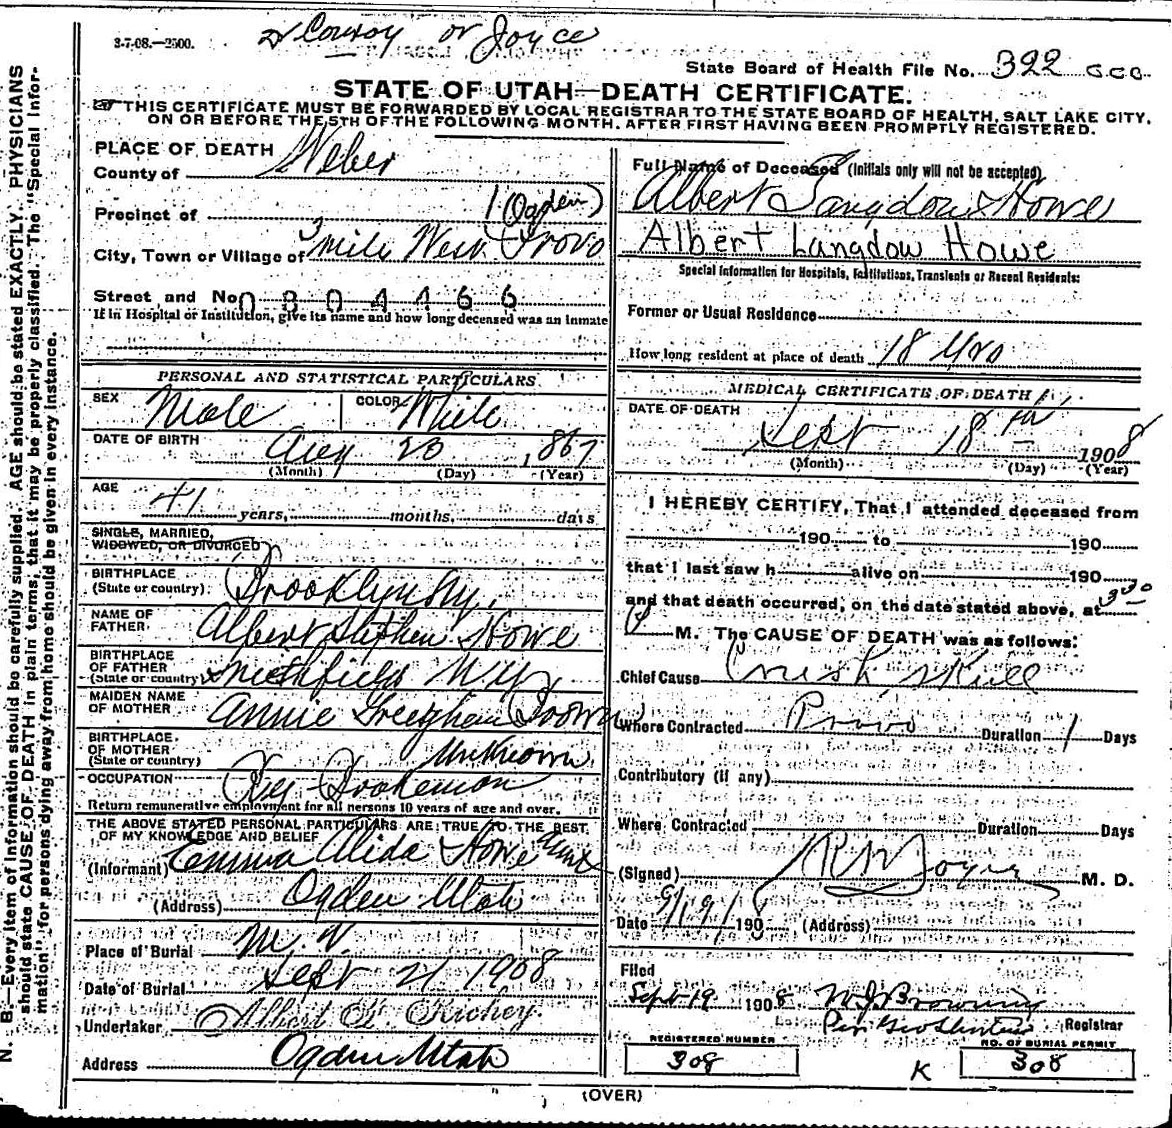 3-7-08.—2500.
Conroy or Joyce
State Board of Health File No. 322 CCC
STATE OF UTAH—DEATH CERTIFICATE.
THIS CERTIFICATE MUST BE FORWARDED BY LOCAL REGISTRAR TO THE STATE BOARD OF HEALTH, SALT LAKE CITY,
ON OR BEFORE THE 5TH OF THE FOLLOWING MONTH, AFTER FIRST HAVING BEEN PROMPTLY REGISTERED.
PLACE OF DEATH
County of Weber
Precinct of (Ogden)
City, Town or Village of 3 mile West Provo
Street and No. 0804466
If in Hospital or Institution, give its name and how long deceased was an inmate
PERSONAL AND STATISTICAL PARTICULARS
SEX Male COLOR White
DATE OF BIRTH Aug 20 1867
(Month) (Day) (Year)
AGE 41 years, months, days
SINGLE, MARRIED,
WIDOWED, OR DIVORCED
BIRTHPLACE
(State or country) Brooklyn Ny.
NAME OF
FATHER Albert Stephen Howe
BIRTHPLACE
OF FATHER
(State or country) Smithfield N Y
MAIDEN NAME
OF MOTHER Annie Brown
BIRTHPLACE
OF MOTHER
(State or country) Unknown
OCCUPATION Brakeman
Return remunerative employment for all persons 10 years of age and over.
THE ABOVE STATED PERSONAL PARTICULARS ARE TRUE TO THE BEST
OF MY KNOWLEDGE AND BELIEF
(Informant) Emma Alida Howe
(Address) Ogden Utah
Place of Burial M. V.
Date of Burial Sept 21 1908
Undertaker Albert Richey.
Address Ogden Utah
Full Name of Deceased (Initials only will not be accepted)
Albert Langdow Howe
Albert Langdow Howe
Special Information for Hospitals, Institutions, Transients or Recent Residents:
Former or Usual Residence
How long resident at place of death 18 Yrs
MEDICAL CERTIFICATE OF DEATH
DATE OF DEATH
Sept 18 1908
(Month) (Day) (Year)
I HEREBY CERTIFY, That I attended deceased from
190 to 190
that I last saw h alive on 190
and that death occurred, on the date stated above, at 3 30
P M. The CAUSE OF DEATH was as follows:
Chief Cause Crush Skull
Where Contracted Provo Duration 1 Days
Contributory (if any)
Where Contracted Duration Days
(Signed) M. D.
Date 9/19/ 1908 (Address)
Filed
Sept 19 1908 Browning
Per Registrar
REGISTERED NUMBER
308
K
NO. OF BURIAL PERMIT
308
(OVER)
N. B.—Every item of information should be carefully supplied. AGE should be stated EXACTLY. PHYSICIANS
should state CAUSE OF DEATH in plain terms, that it may be properly classified. The "Special Infor-
mation" for persons dying away from home should be given in every instance.